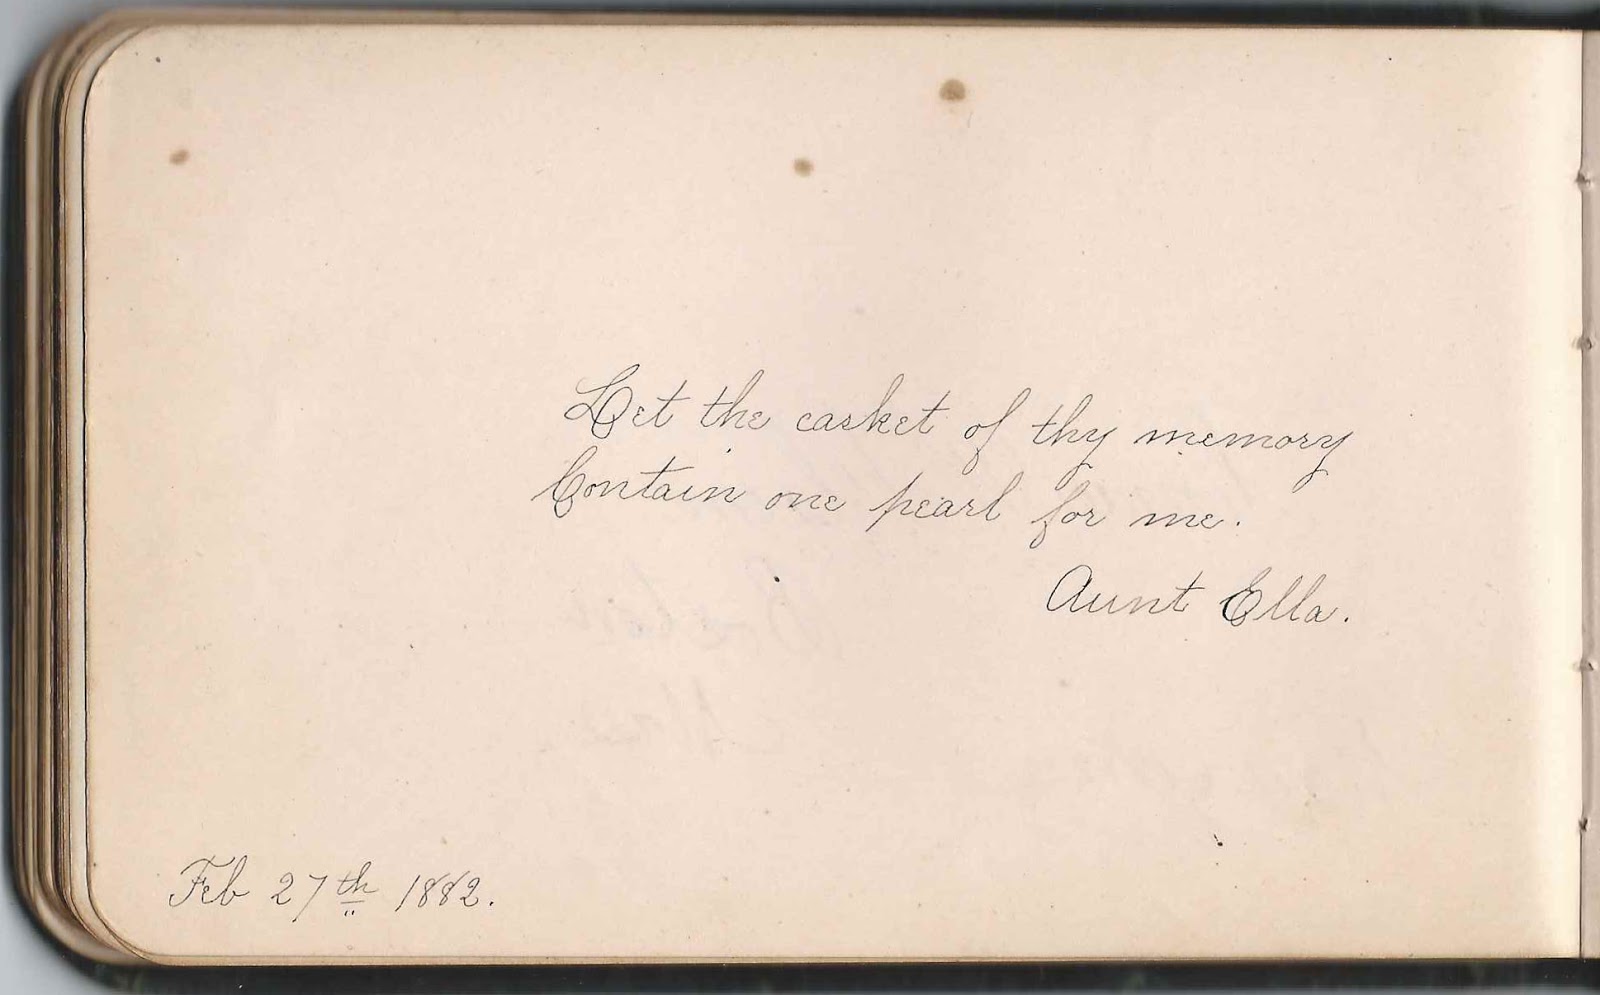 Let the casket of thy memory
Contain one pearl for me.
Aunt Ella.
Feb 27th 1882.